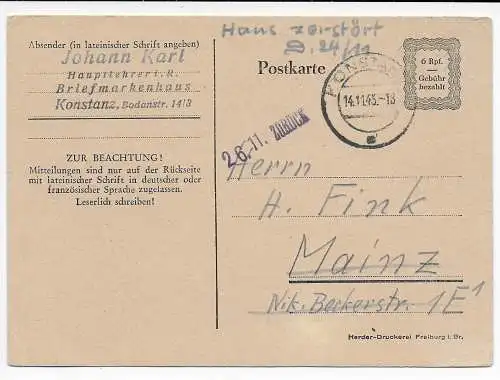 Haus zerstört
D. 24/11
Absender (in lateinischer Schrift angeben)
Johann Karl
Hauptlehrer i.R.
Briefmarkenhaus
Konstanz, Bodanstr. 14/3
Postkarte
6 Rpf.
Gebühr
bezahlt
KONSTANZ
14.11.45.-18
a
26.11. ZURÜCK
ZUR BEACHTUNG!
Mitteilungen sind nur auf der Rückseite
mit lateinischer Schrift in deutscher oder
französischer Sprache zugelassen.
Leserlich schreiben!
Herrn
H. Fink
Mainz
Nik. Beckerstr. 1E¹
Herder-Druckerei Freiburg i. Br.